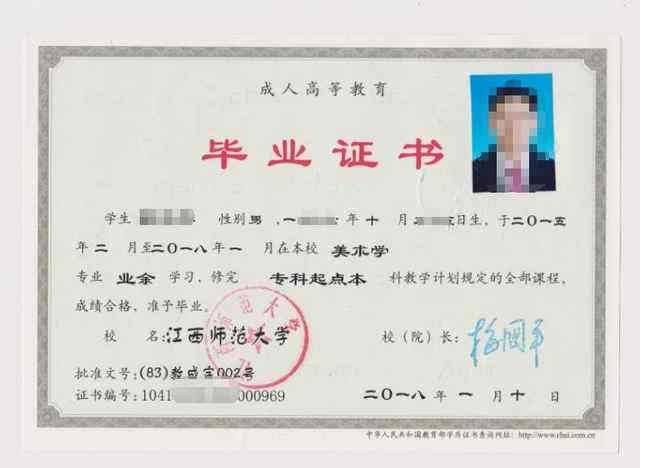 成人高等教育
毕业证书
学生 性别 男 ,一 年 十 月 日生,于二〇一五
年 二 月至二〇一八年 一 月在本校 美术学
专业 业余 学习,修完 专科起点本 科教学计划规定的全部课程,
成绩合格,准予毕业。
校 名:江西师范大学 校(院)长:
批准文号:(83)教成字002号
证书编号:1041 000969 二〇一八 年 一 月 十 日
中华人民共和国教育部学历证书查询网址: http://www.chsi.com.cn